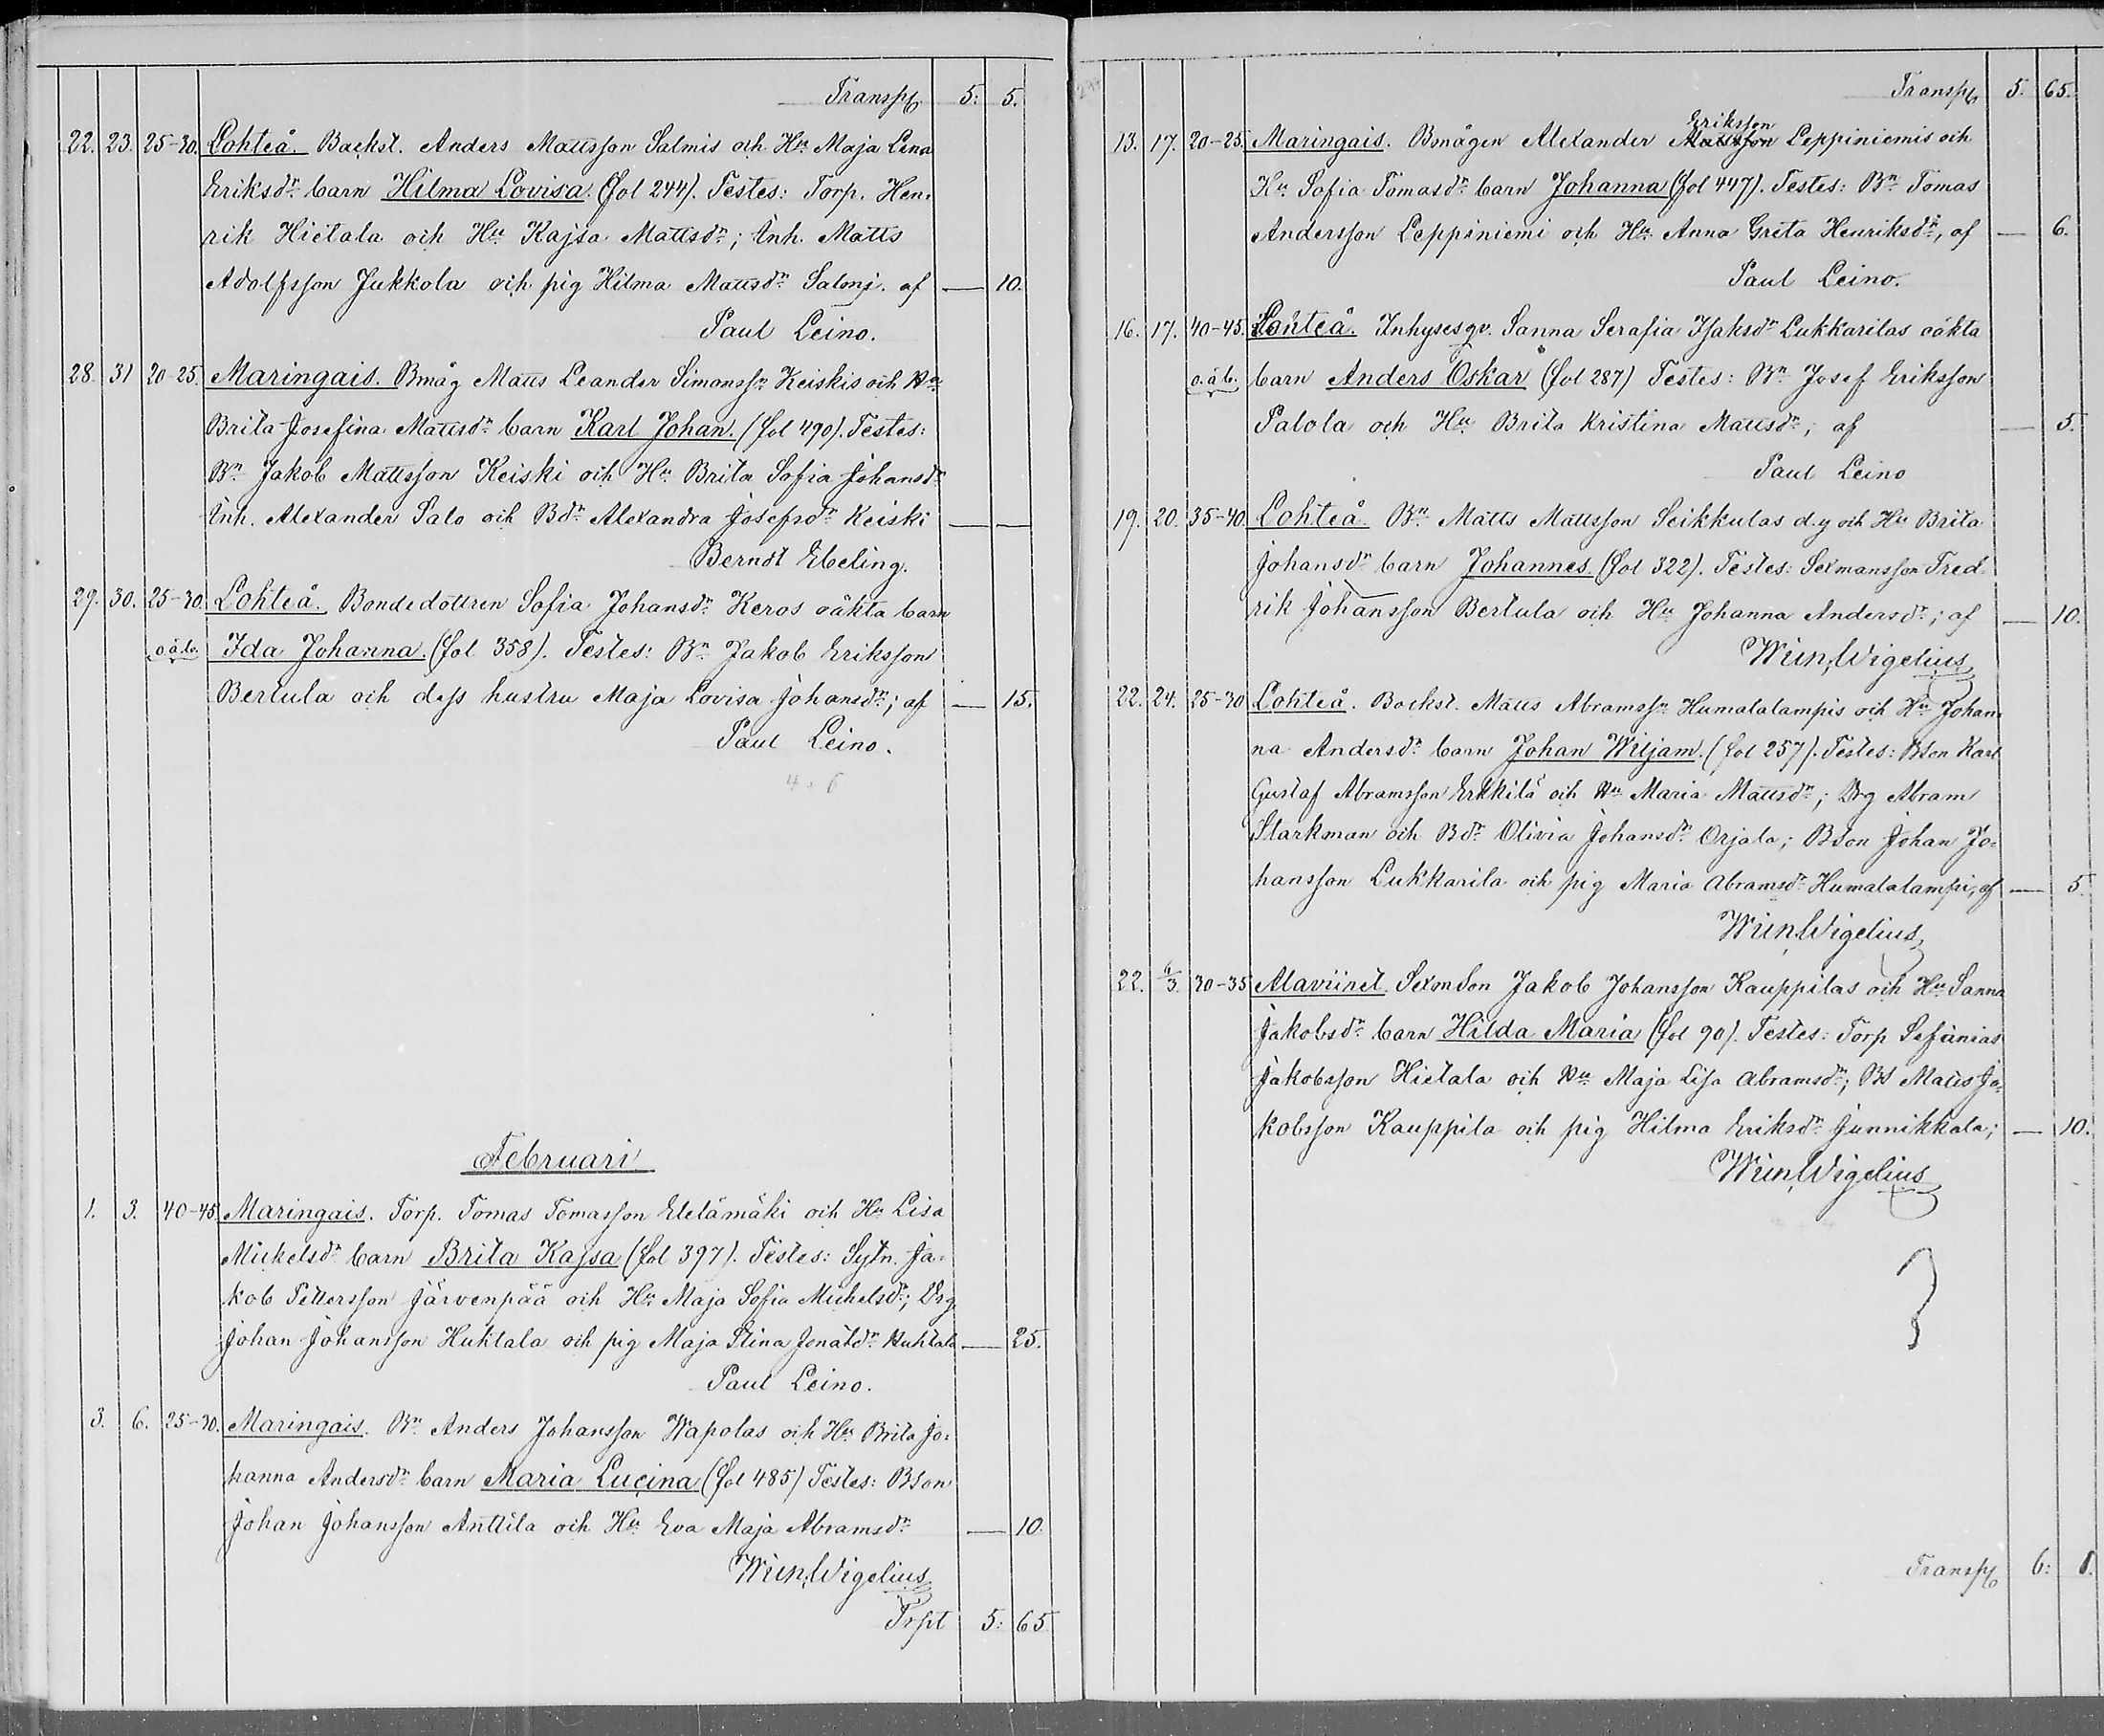 Transp 5: 5.
22. 23. 25-30. Lohteå. Backst. Anders Mattsson Salmis och Hu Maja Lena
Eriksdr barn Hilma Lovisa. (fol 244). Testes: Torp. Hen-
rik Hietala och Hu Kajsa Mattsdr; Inh. Matts
Adolfsson Jukkola och pig Hilma Mattsdr Salonj. af — 10.
Paul Leino.
28. 31 20-25. Maringais. Bmåg Matts Leander Simonssn Keiskis och Hu
Brita Josefina Mattsdr barn Karl Johan. (fol 490). Testes:
Bn Jakob Mattsson Keiski och Hu Brita Sofia Johansdr
Inh. Alexander Salo och Bdr Alexandra Josefsdr Keiski — —
Berndt Ebeling.
29. 30. 25-30. Lohteå. Bondedottren Sofia Johansdr Keros oäkta barn
o.ä.b. Ida Johanna. (fol 358). Testes: Bn Jakob Eriksson
Bertula och dess hustru Maja Lovisa Johansdr; af — 15.
Paul Leino.
4 + 6
Februari
1. 3. 40-45. Maringais. Torp. Tomas Tomasson Etelämäki och Hu Lisa
Mickelsdr barn Brita Kajsa (fol 397). Testes: Sytn. Ja-
kob Pettersson Järvenpää och Hu Maja Sofia Michelsdr; Drg
Johan Johansson Huhtala och pig Maja Stina Jonasdr Huhtala — 25.
Paul Leino.
3. 6. 25-30. Maringais. Bn Anders Johansson Wapolas och Hu Brita Jo-
hanna Andersdr barn Maria Lucina (fol 485) Testes: Bson
Johan Johansson Anttila och Hu Eva Maja Abramsdr — 10.
Wigelius
Trpt 5: 65
Transp 5. 65.
Eriksson
13. 17. 20-25. Maringais. Bmågen Alexander Mattsson Leppiniemis och
Hu Sofia Tomasdr barn Johanna (fol 447). Testes: Bn Tomas
Andersson Leppiniemi och Hu Anna Greta Henriksdr, af — 6.
Paul Leino.
16. 17. 40-45. Lohteå. Inhysesqv. Sanna Serafia Isaksdr Lukkarilas oäkta
o.ä.b. barn Anders Oskar (fol 287) Testes: Bn Josef Eriksson
Palola och Hu Brita Kristina Mattsdr; af — 5.
Paul Leino
19. 20. 35-40. Lohteå. Bn Matts Mattsson Seikkulas d.y och Hu Brita
Johansdr barn Johannes. (fol 322). Testes: Sexmansson Fred-
rik Johansson Bertula och Hu Johanna Andersdr; af — 10.
Wigelius
22. 24. 25-30 Lohteå. Backst. Matts Abramssn Humalalampis och Hu Johan-
na Andersdr barn Johan Wiljam. (fol 257). Testes: Bson Karl
Gustaf Abramsson Erkkilä och Hu Maria Mattsdr; Drg Abram
Starkman och Bdr Olivia Johansdr Orjala; Bson Johan Jo-
hansson Lukkarila och pig Maria Abramsdr Humalalampi, af — 5.
Wigelius
22. 6/3. 30-35 Alaviiret. Sexmson Jakob Johansson Kauppilas och Hu Sanna
Jakobsdr barn Hilda Maria (fol 90). Testes: Torp Sefanias
Jakobsson Hietala och Hu Maja Lisa Abramsdr; Bs Matts Ja-
kobsson Kauppila och pig Hilma Eriksdr Junnikkala; — 10.
Wigelius
Transp 6: 1.